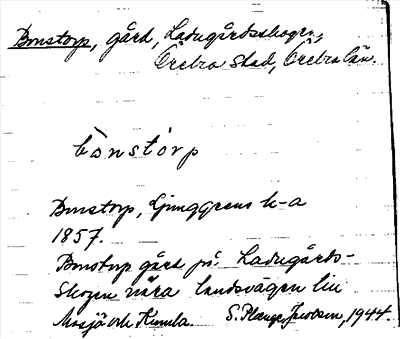 Bonstorp, gård, Ladugårdsskogen,
Örebro stad, Örebro län.
bònstórp
Bonstorp, Ljunggrens k-a
1857.
Bonstorp gård på Ladugårds-
skogen nära landsvägen till
Mosjö och Kumla. S. Plange Jacobson, 1944.